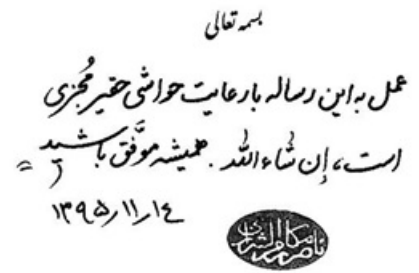 بسمه تعالی
عمل به این رساله با رعایت حواشی حقیر مُجزی
است، إن شاء الله. همیشه موفّق باشید
۱۳۹۵/۱۱/۱٤
ناصر مکارم الشیرازی